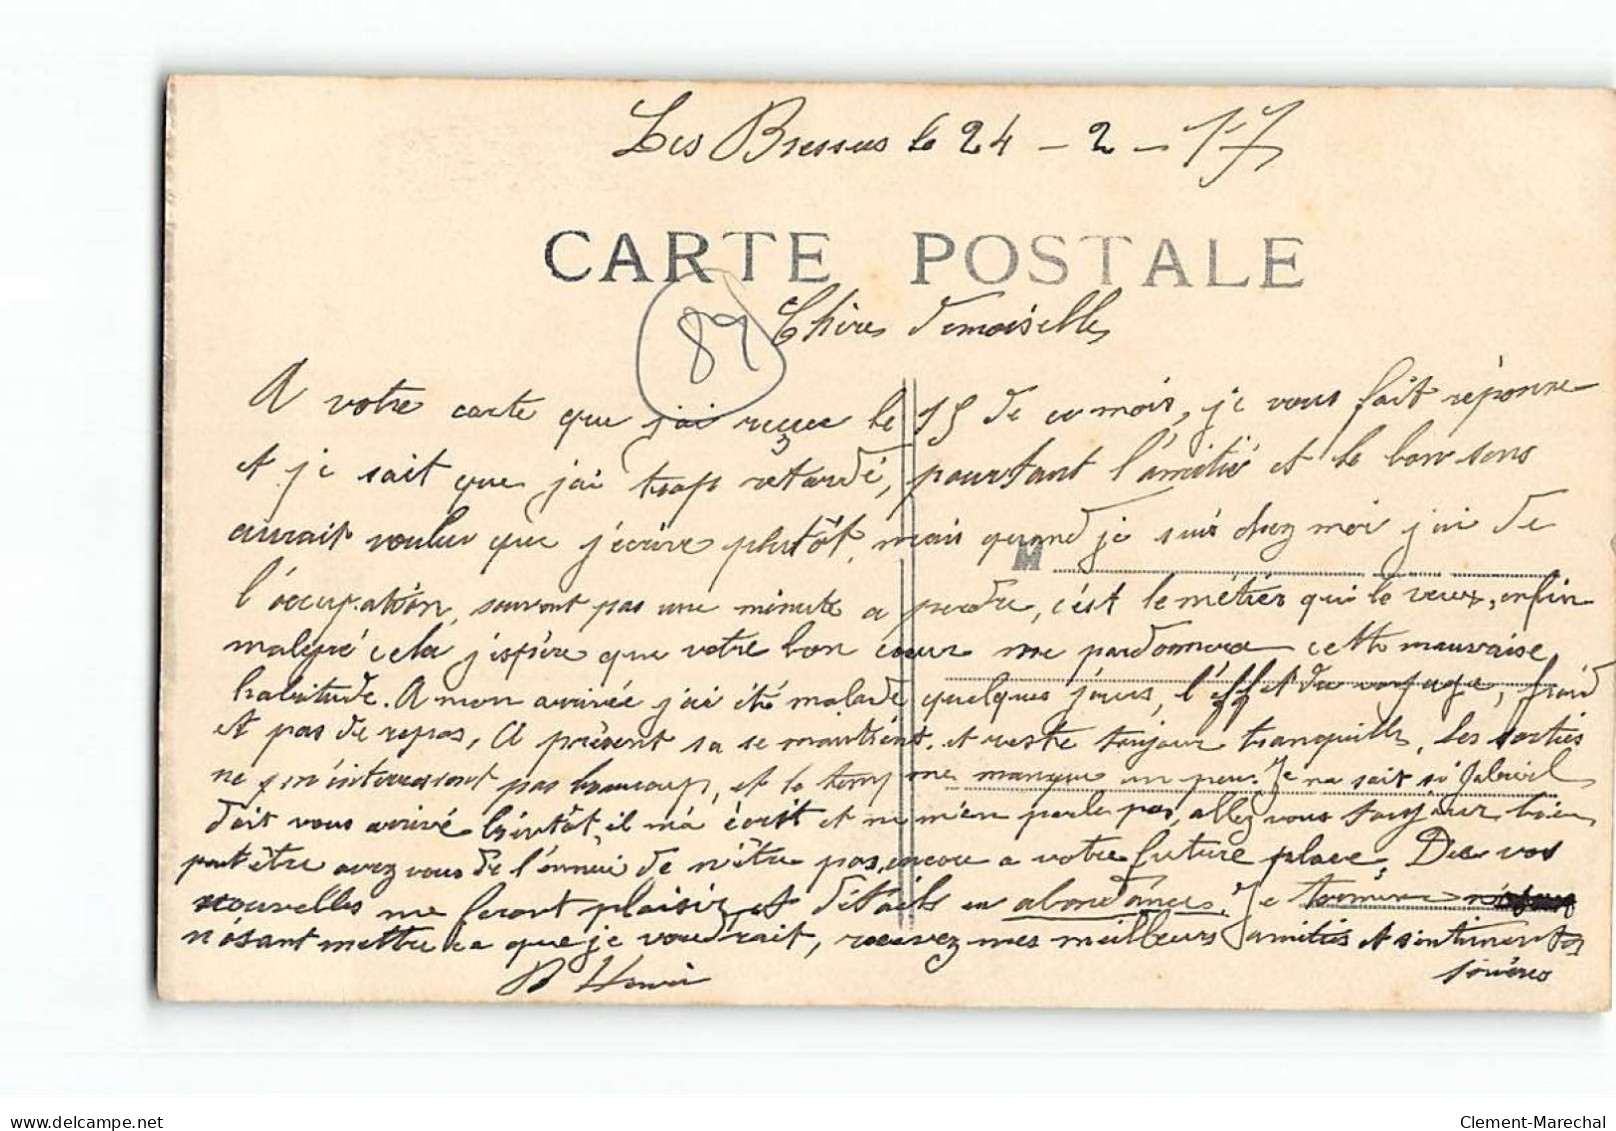 Les Bressus le 24 - 2 - 17
CARTE POSTALE
89
Chères Demoiselles
A votre carte que j'ai reçue le 15 de ce mois, je vous fait réponse
et je sait que j'ai trop retardé, pourtant l'amitié et le bon sens
aurait voulue que j'écrive plutôt, mais quand je suis chez moi j'ai de
M
l'occupation, souvent pas une minute a perdre, c'est le métier qui le veux, enfin
malgré cela j'espère que votre bon cœur me pardonnera cette mauvaise
habitude. A mon arrivée j'ai été malade quelques jours, l'effet du voyage, froid
et pas de repos, A présent sa se maintient, et reste toujour tranquille, les sorties
ne m'interressant pas beaucoup, et le temp me manque un peu. Je ne sait si Gabriel
doit vous arrivé bientôt, il m'a écrit et ne m'en parle pas, allez vous toujour bien,
peut être avez vous de l'ennui de n'être pas encore a votre future place. De vos
nouvelles me feront plaisir et détails en abondances. Je termine
n'osant mettre ce que je voudrait, recevez mes meilleurs amitiés et sentiments
sincères
Henri
Clement-Marechal
delcampe.net